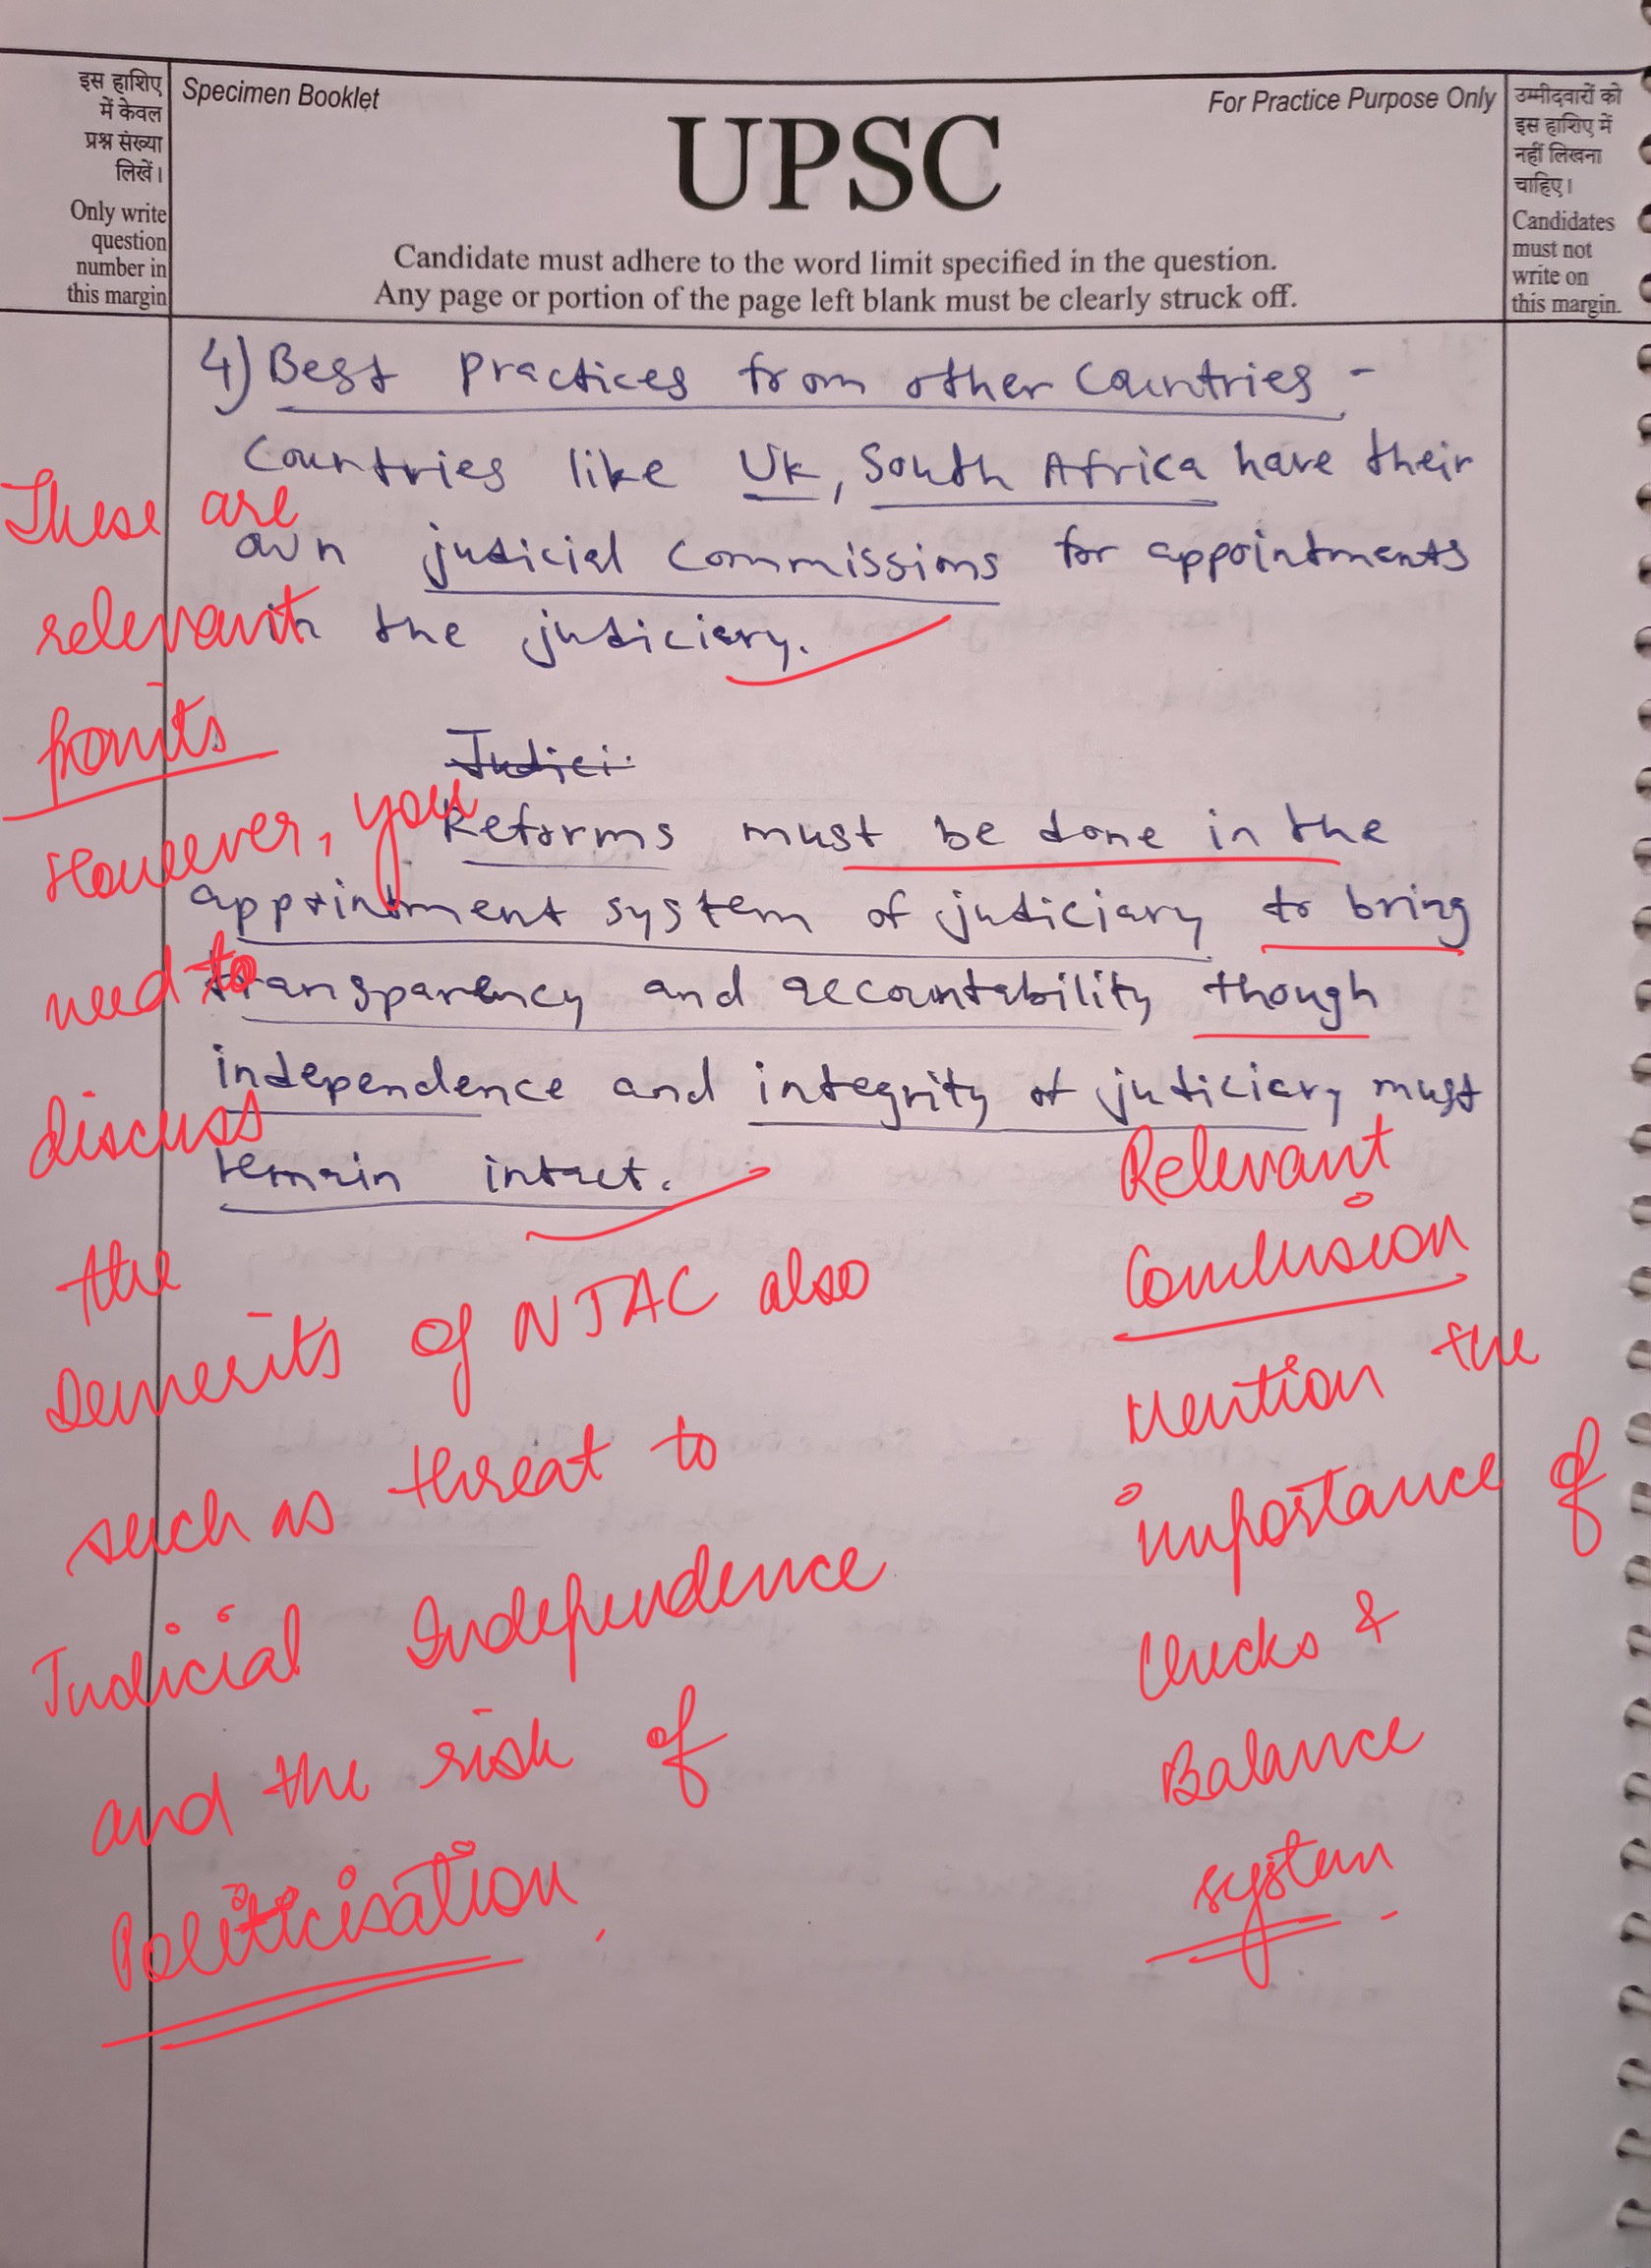 इस हाशिए
में केवल
प्रश्न संख्या
लिखें।
Only write
question
number in
this margin
Specimen Booklet
For Practice Purpose Only
UPSC
Candidate must adhere to the word limit specified in the question.
Any page or portion of the page left blank must be clearly struck off.
उम्मीदवारों को
इस हाशिए में
नहीं लिखना
चाहिए।
Candidates
must not
write on
this margin.
4) Best Practices from other Countries -
Countries like UK, South Africa have their
own judicial commissions for appointments
in the judiciary.
Judici
Reforms must be done in the
appointment system of judiciary to bring
transparency and accountability though
independence and integrity of judiciary must
remain intact.
These are
relevant
points
However, you
need to
discuss
the
Demerits of NJAC also
such as threat to
Judicial Independence
and the risk of
Politicisation.
Relevant
Conclusion
Mention the
importance of
Checks &
Balance
system.